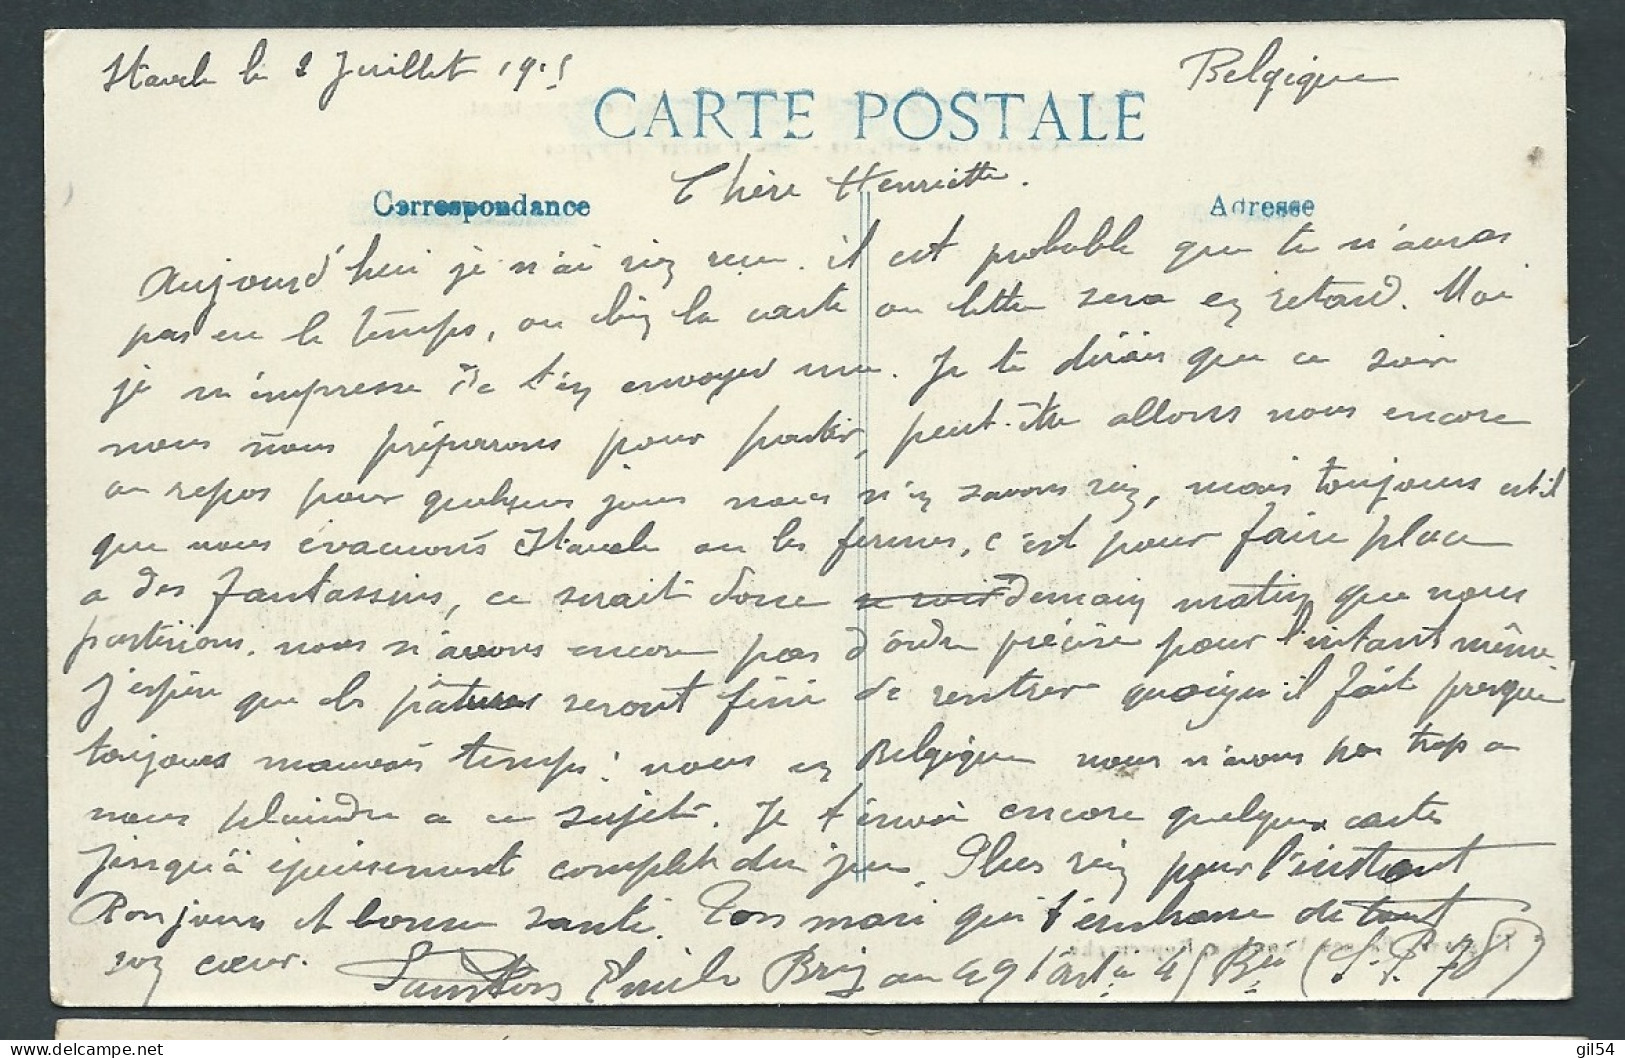 Stavele le 2 Juillet 1915
Belgique
CARTE POSTALE
Correspondance
Adresse
Chère Henriette.
Aujourd'hui je n'ai rien reçu. il est probable que tu n'auras
pas eu le temps, ou bien la carte ou lettre sera en retard. Moi
je m'empresse de t'en envoyer une. Je te dirais que ce soir
nous nous préparons pour partir, peut-être allons nous encore
au repos pour quelques jours nous n'en savons rien, mais toujours est-il
que nous évacuons Stavele ou les fermes, c'est pour faire place
a des fantassins, ce serait donc ce soir demain matin que nous
partirions. nous n'avons encore pas d'ordre précise pour l'instant même.
J'espère que les pâtures seront fini de rentrer quoiqu'il fait presque
toujours mauvais temps: nous en Belgique nous n'avons pas trop a
nous plaindre a ce sujet. Je t'envoi encore quelques cartes
jusqu'à épuisement complet du jeu. Plus rien pour l'instant
Bonjours et bonne santé. Ton mari qui t'embrasse de tout
son cœur. Emile Brig au 49 d'art ie 45 Bie (S. P. 78)
gil54